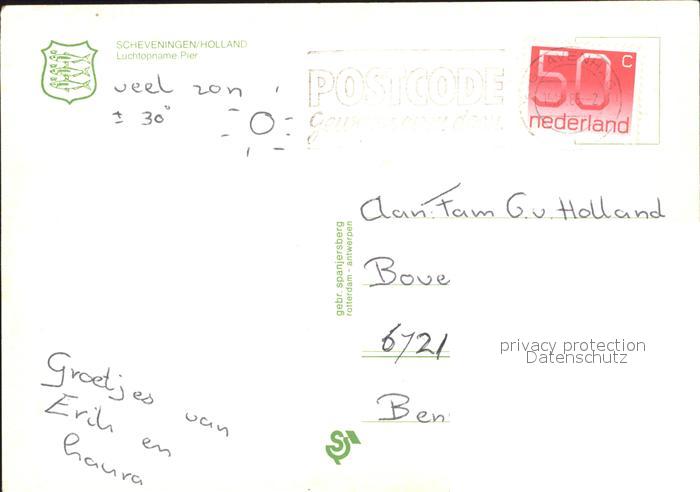 SCHEVENINGEN/HOLLAND
Luchtopname Pier
veel zon
± 30°
POSTCODE
50 C
nederland
Aan: Fam G. v. Holland
Bove
6721
Ben
gebr. spanjersberg
rotterdam - antwerpen
privacy protection
Datenschutz
Groetjes van
Erik en
Laura